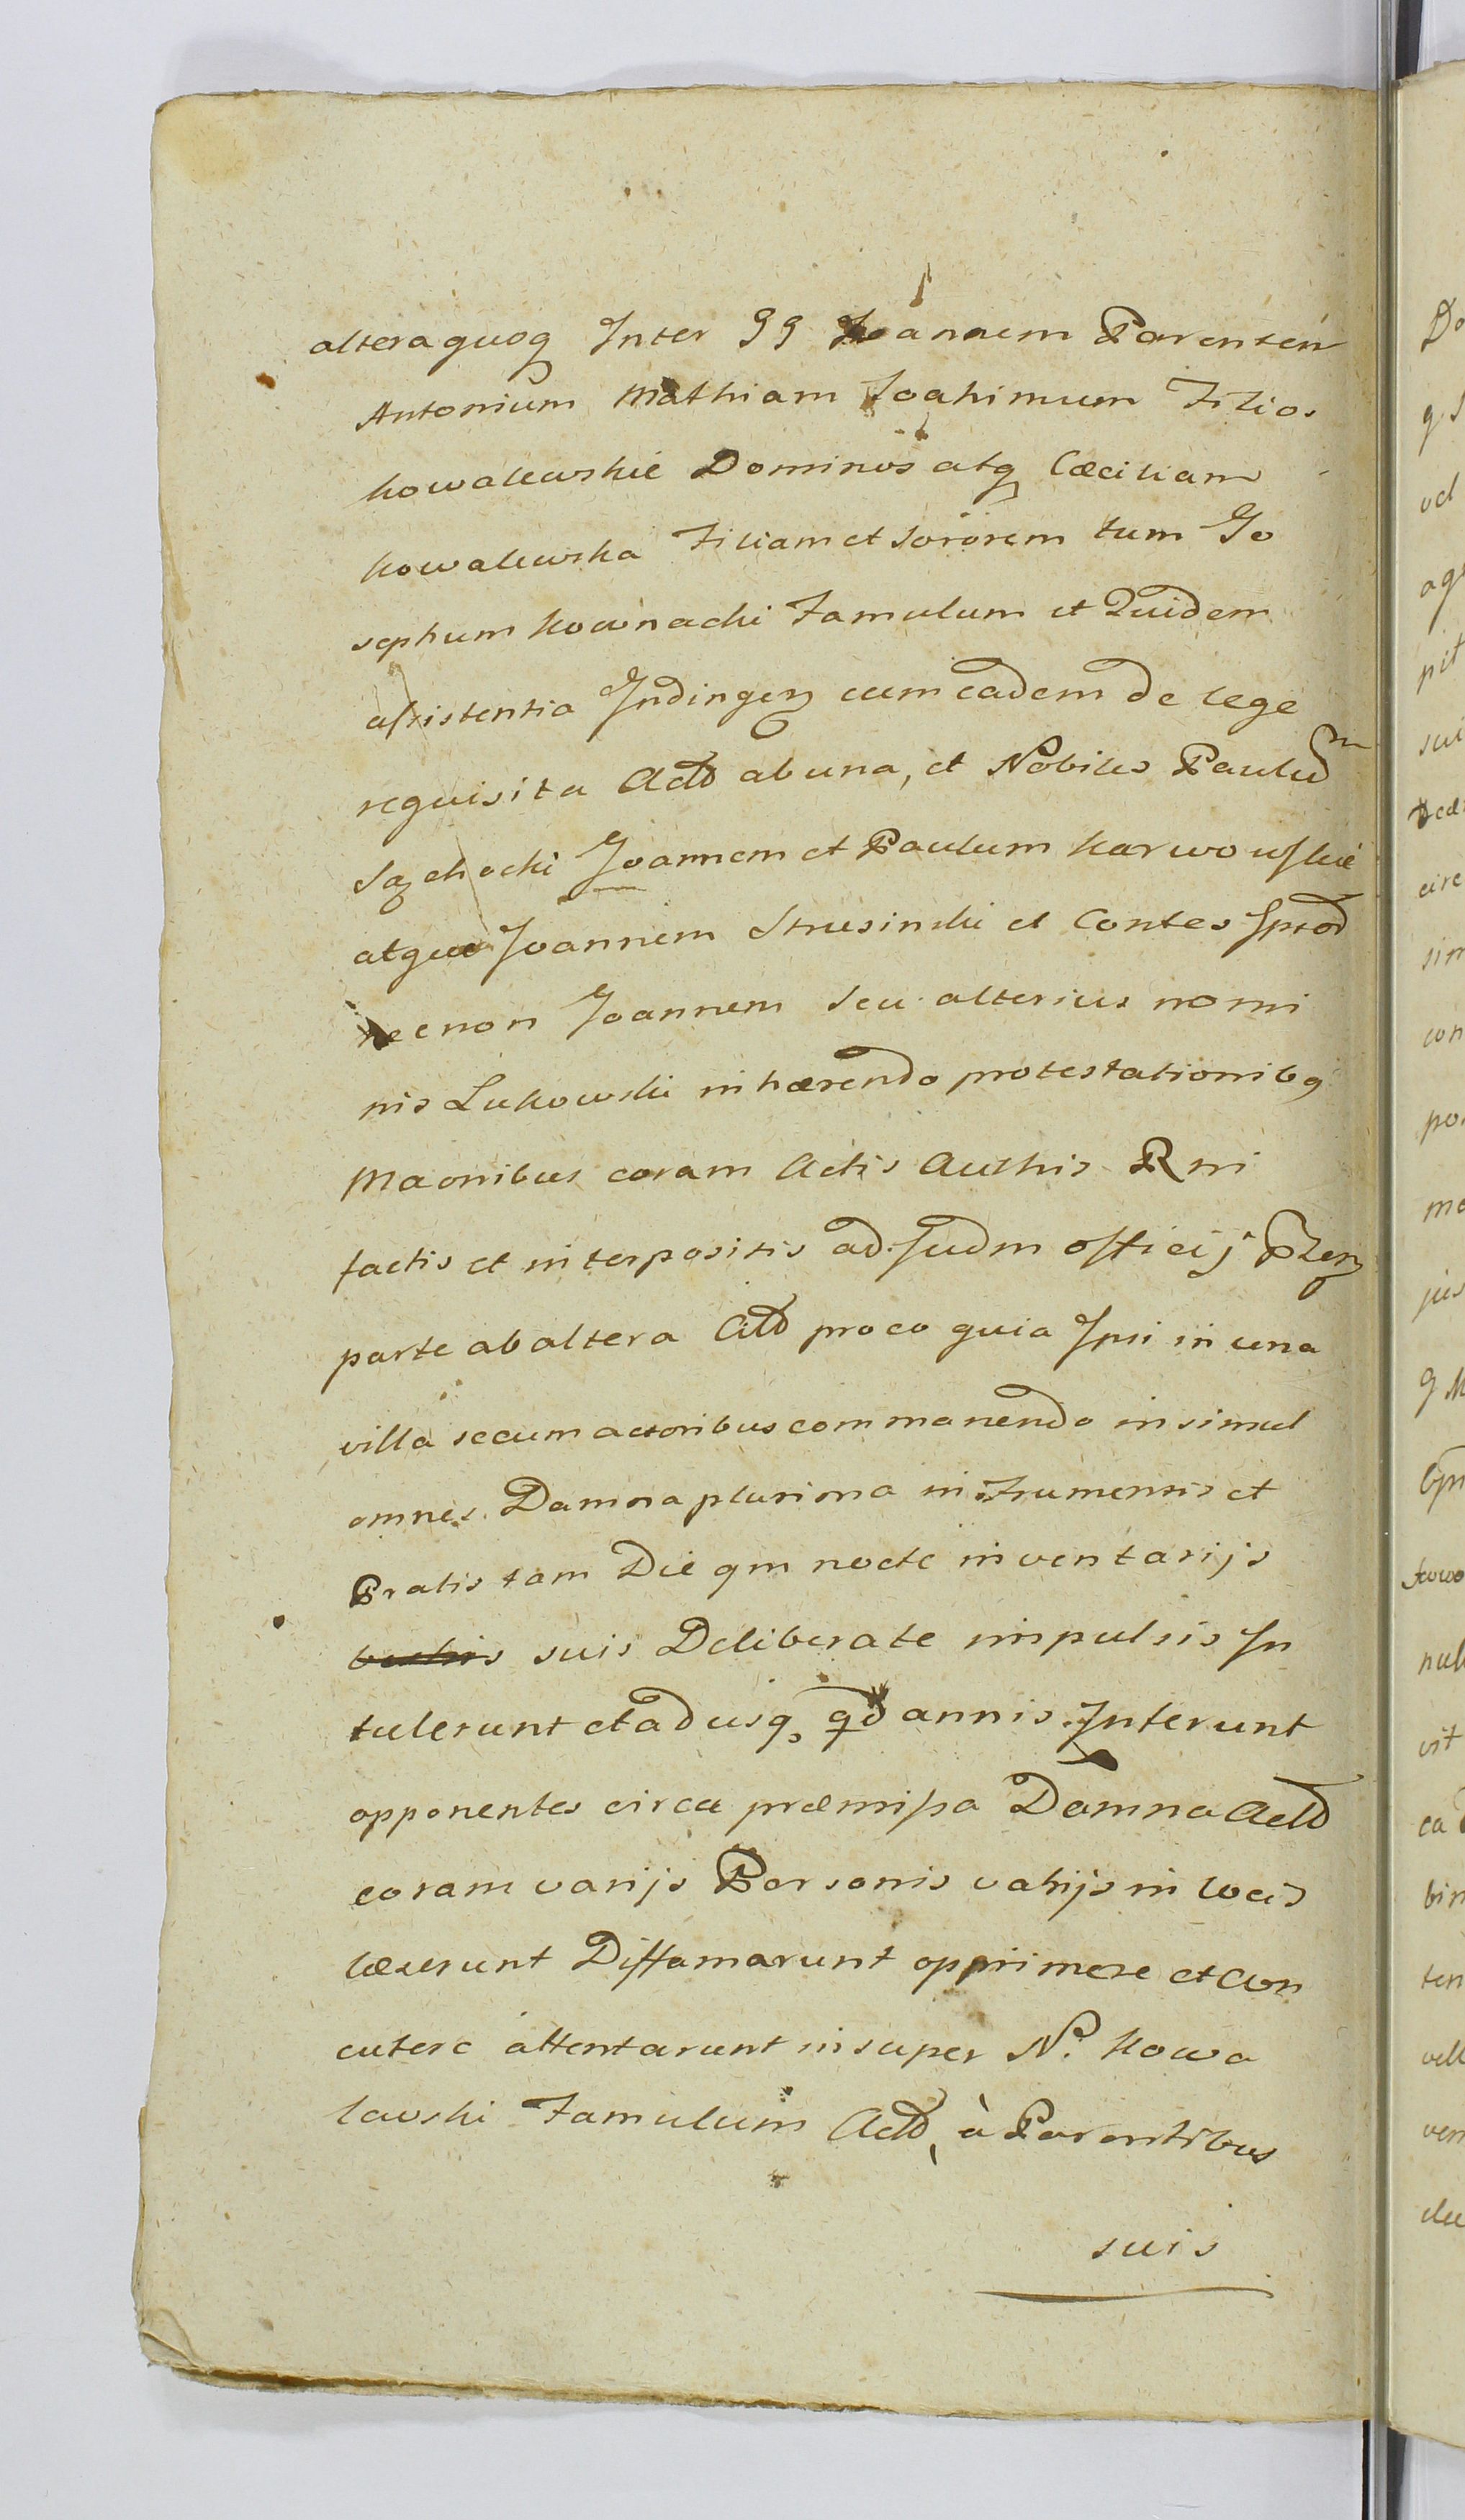 altera quoq Inter GG Joannem Parentem
Antonium Mathiam Joahimum Filios
Kowalewskie Dominos atq Cæciliam
Kowalewska Filiam et Sororem tum Jo
sephum Kownacki Famulum et Quidem
assistentia Indingen cum eadem de lege
requisita Actd ab una, et Nobiles Paulum
Joannem et Paulum Karwowskie
atque Joannem Strusinski et Contes Sprod
necnon Joannem seu alterius nomi
nis Lukowski inhærendo protestationibq
Maonibus coram Actis Authis R ni
factis et interpositis ad Judm officij Przen
parte ab altera Citd pro eo quia Ipsi in una
villa secum actoribus commanendo insimul
omnes Damna plurima in Frumentis et
Pratis tam Die qm nocte inventarijs
suis Deliberate impulsis In
tulerunt et adusq qd annis Inferunt
opponentes circa præmissa Damna Actd
coram varijs Personis varijs in locis
læserunt Diffamarunt opprimere et con
cutere attentarunt insuper N. Kowa
lewski Famulum Actd, à Parentibus
suis